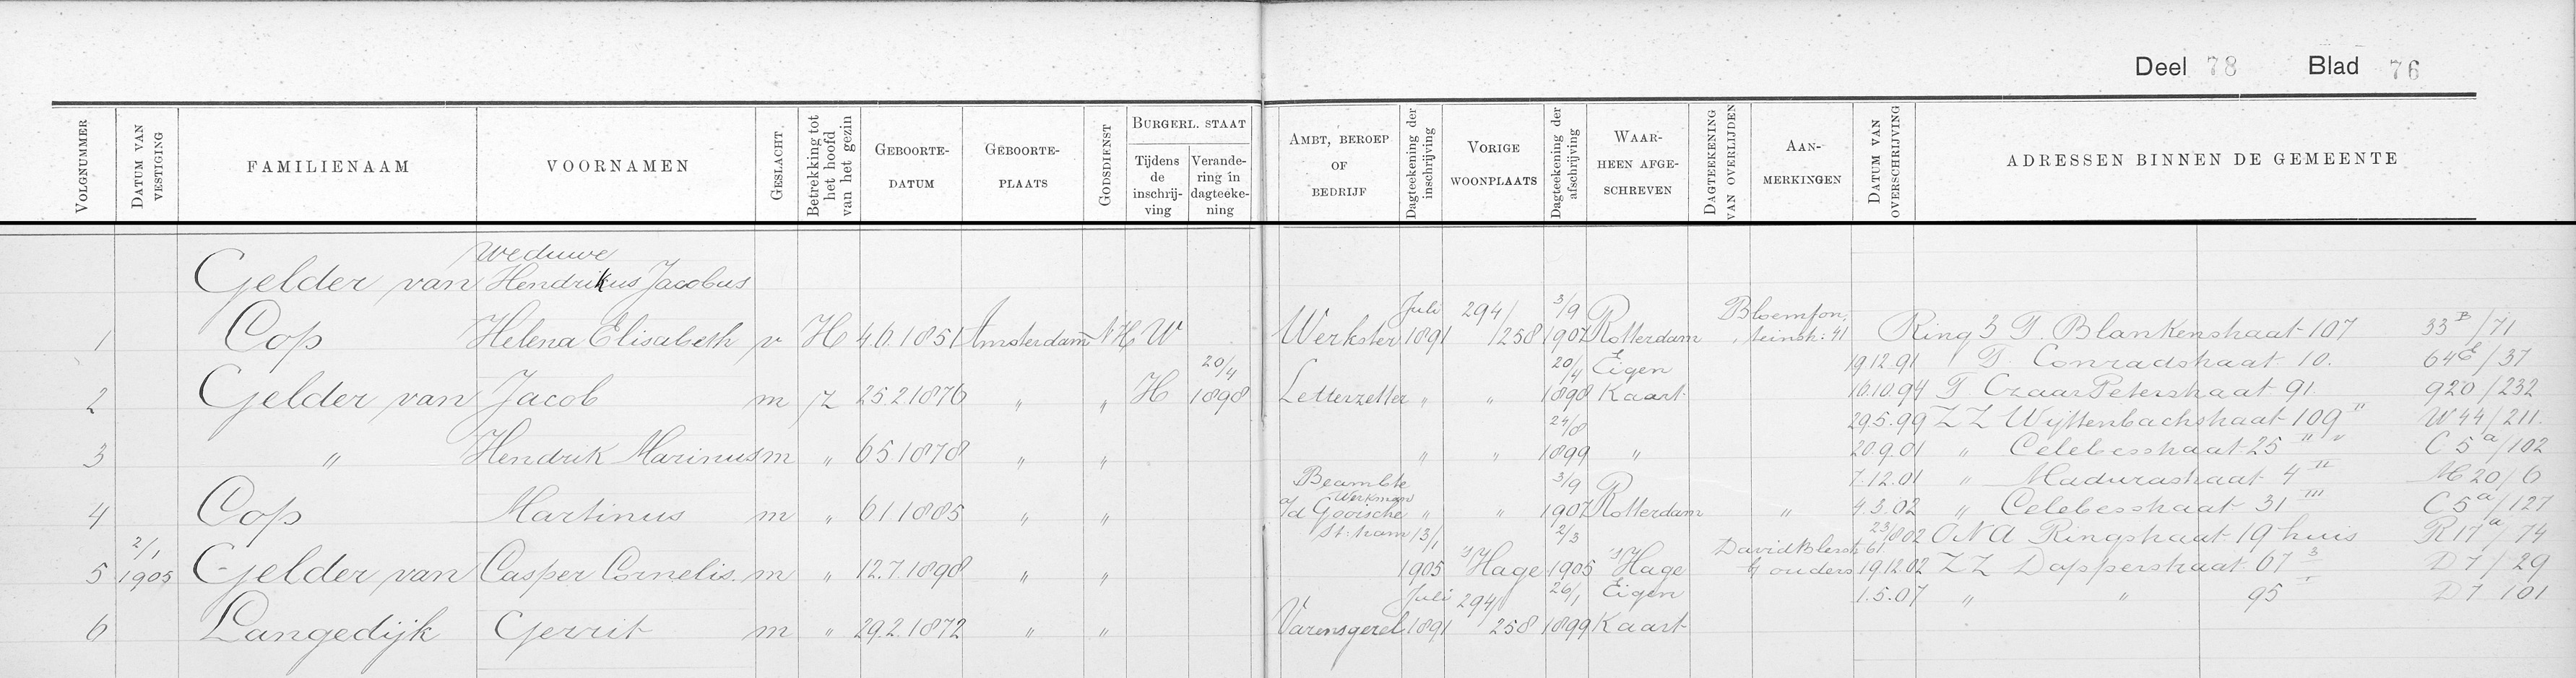 Deel 78 Blad 76
VOLGNUMMER DATUM VAN VESTIGING FAMILIENAAM VOORNAMEN GESLACHT Betrekking tot het hoofd van het gezin GEBOORTE-DATUM GEBOORTE-PLAATS GODSDIENST BURGERL. STAAT Tijdens de inschrij-ving Verande-ring in dagteeke-ning AMBT, BEROEP OF BEDRIJF Dagteekening der inschrijving VORIGE WOONPLAATS Dagteekening der afschrijving WAAR-HEEN AFGE-SCHREVEN DAGTEEKENING VAN OVERLIJDEN AAN-MERKINGEN DATUM VAN OVERSCHRIJVING ADRESSEN BINNEN DE GEMEENTE
Weduwe
Gelder van Hendrikus Jacobus
1 Cop Helena Elisabeth v H 4.6.1851 Amsterdam NH W Werkster Juli 1891 294/258 3/9 1907 Rotterdam Bloemfon,teinstr: 41 Ring 3 T. Blankenstraat 107 33B/71
19.12.91 T. Conradstraat 10. 64E/37
2 Gelder van Jacob m Z 25.2.1876 " " H 20/4 1898 Letterzetter " " 20/4 1898 Eigen Kaart 16.10.94 T CzaarPeterstraat 91. 920/232
29.5.99 ZZ Wijttenbachstraat 109 II W44/211.
3 " Hendrik Marinus m " 6.5.1878 " " " " 24/8 1899 " 20.9.01 " Celebesstraat 25 II " C5a/102
7.12.01 " Madurastraat 4 II M20/6
4 Cop Martinus m " 6.1.1885 " " Beambte Werkman a/d Gooische St: tram " " 3/9 1907 Rotterdam " 4.3.02 " Celebesstraat 31 III C5a/127
23/802 ONA Ringstraat 19 huis R17a/74
5 2/1 1905 Gelder van Casper Cornelis. m " 12.7.1898 " " 13/1 1905 's Hage 2/3 1905 's Hage DavidBlesstr 61 b/ ouders 19.12.02 ZZ Dapperstraat 67 3 D7/29
1.5.07 " " 95 I D7/101
6 Langedijk Gerrit m " 29.2.1872 " " Varensgezel Juli 1891 294/258 26/1 1899 Eigen Kaart